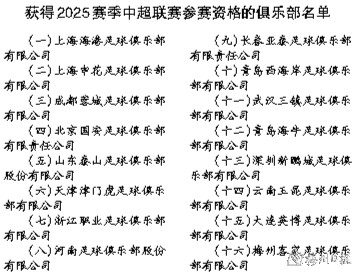 获得2025赛季中超联赛参赛资格的俱乐部名单
(一)上海海港足球俱乐部
有限公司
(二)上海申花足球俱乐部
有限公司
(三)成都蓉城足球俱乐部
有限公司
(四)北京国安足球俱乐部
有限责任公司
(五)山东泰山足球俱乐部
股份有限公司
(六)天津津门虎足球俱乐
部有限公司
(七)浙江职业足球俱乐部
有限公司
(八)河南足球俱乐部股份
有限公司
(九)长春亚泰足球俱乐部
有限责任公司
(十)青岛西海岸足球俱乐
部有限公司
(十一)武汉三镇足球俱乐
部有限公司
(十二)青岛海牛足球俱乐
部有限公司
(十三)深圳新鹏城足球俱
乐部有限公司
(十四)云南玉昆足球俱乐
部有限公司
(十五)大连英博足球俱乐
部有限公司
(十六)梅州客家足球俱乐
部有限公司